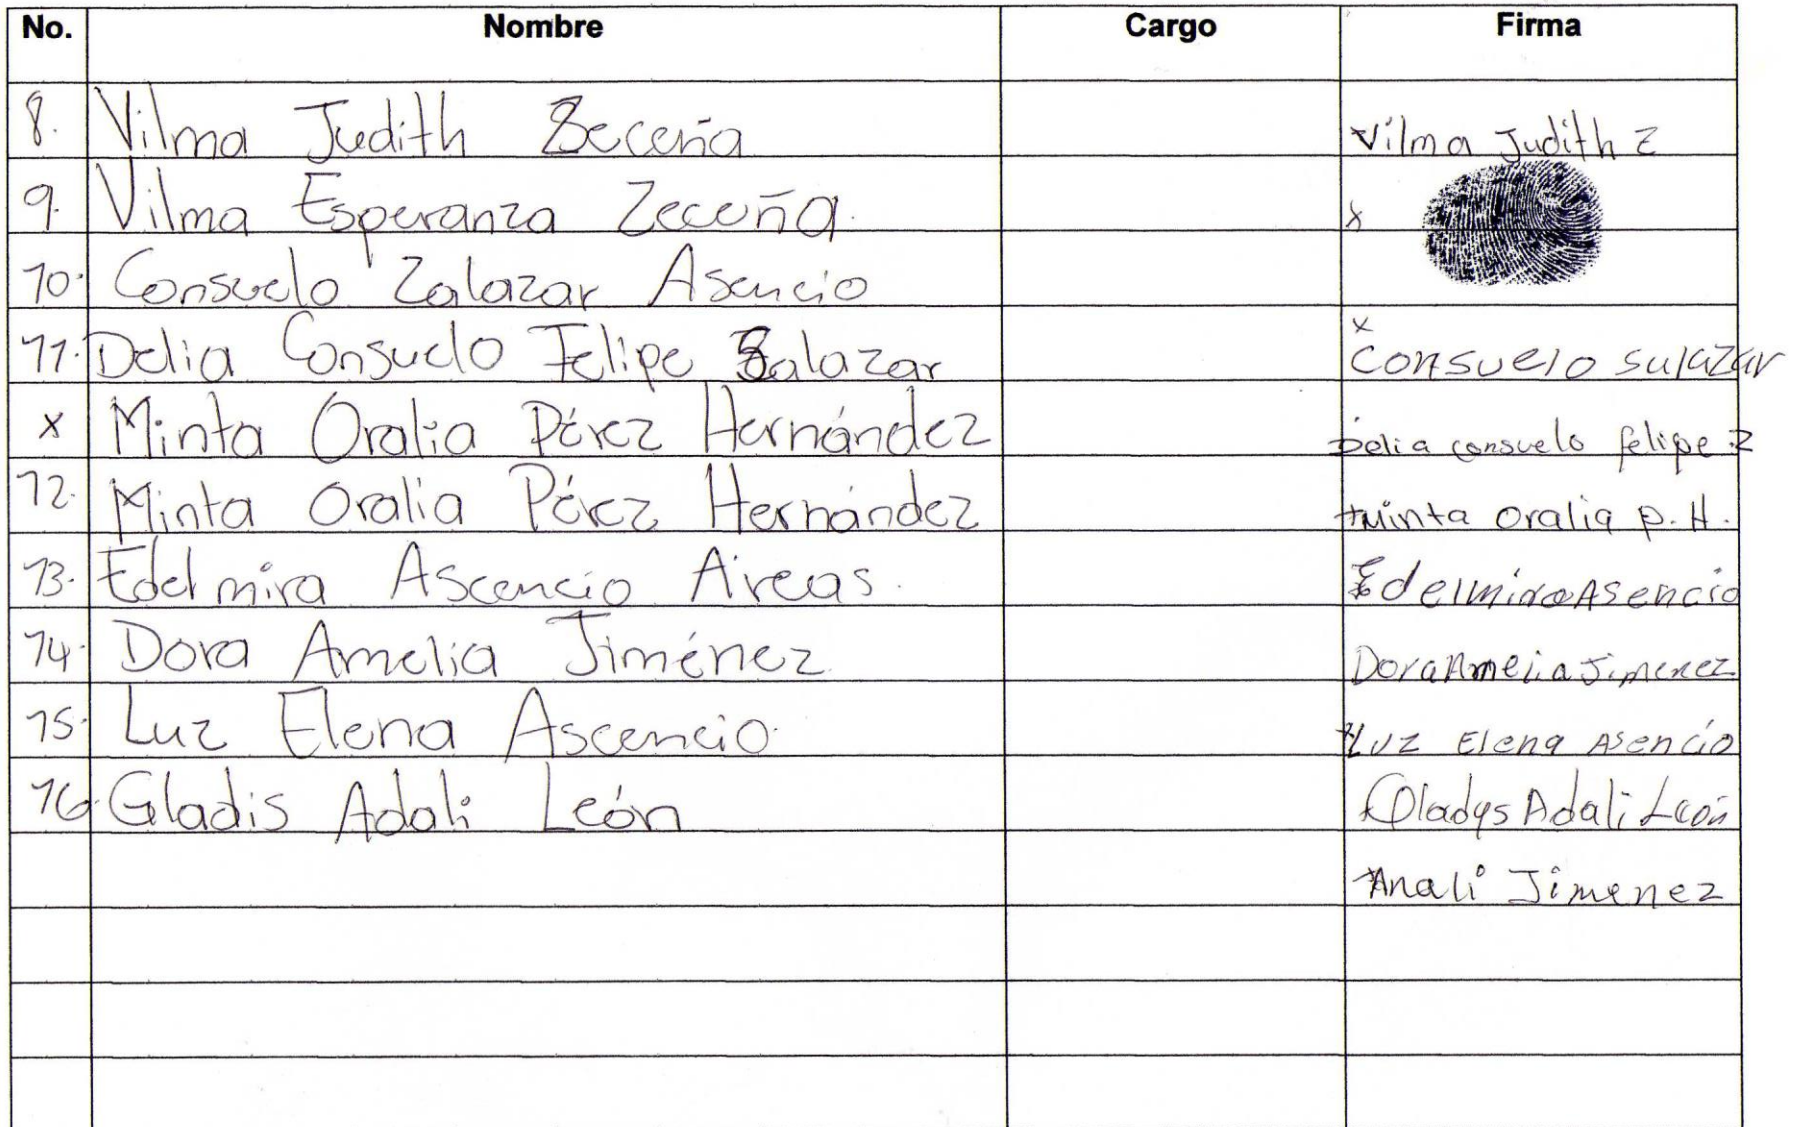 No. Nombre Cargo Firma
8. Vilma Judith Zeceña Vilma Judith Z
9. Vilma Esperanza Zeceña. x
10. Consuelo Zalazar Asencio
11. Delia Consuelo Felipe Salazar x Consuelo sulazar
x Minta Oralia Pérez Hernández Delia consuelo felipe Z
12. Minta Oralia Pérez Hernández Minta oralia p. H.
13. Edelmira Ascencio Áreas. Edelmira Asencio
14. Dora Amelia Jiménez Dora Ameia Jimenez
15. Luz Elena Ascencio. Luz Elena Asencio
16. Gladis Adali León Gladys Adali León
Anali Jimenez